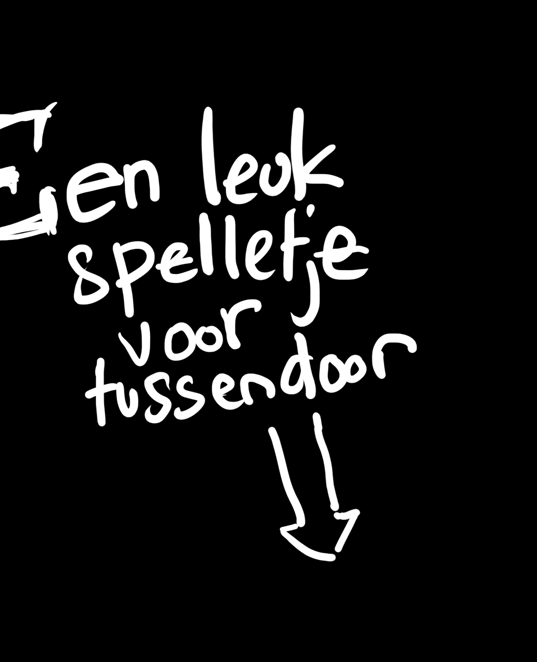 Een leuk
spelletje
voor
tussendoor